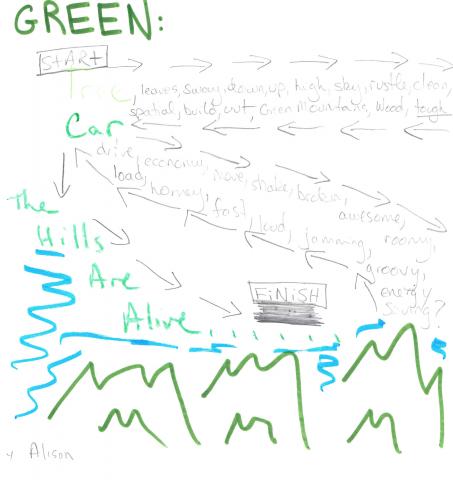 GREEN:
START
Tree
leaves, sway, down, up, high, sky, rustle, clean,
spatial, build, cut, Green Mountains, wood, tough
Car
drive, economy, move, shake, broken,
awesome,
roomy,
groovy,
energy
saving?
jamming,
loud,
fast,
homey,
load,
The
Hills
Are
Alive
FINISH
Alison